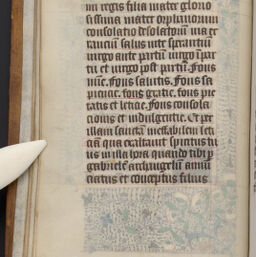 mi regis filia mater glorio
sissima mater orphanorum
consolatio desolatorum via er
rancium salus i͞n te sperantiu͞m
virgo ante partu͞m virgo i͞n par
tu et virgo post partu͞m. Fons
mie. Fons salutis. Fons
fons gratie. fons pie
tatis et leticie. Fons consola
tionis et indulgentie. Et per
illam sancta͞m ineffabilem leti
cia͞m qua exaltauit spiritus tu
us in illa hora quando tibi p
gabriele͞m archangelu͞m annu͞n
ciatus et conceptus filius